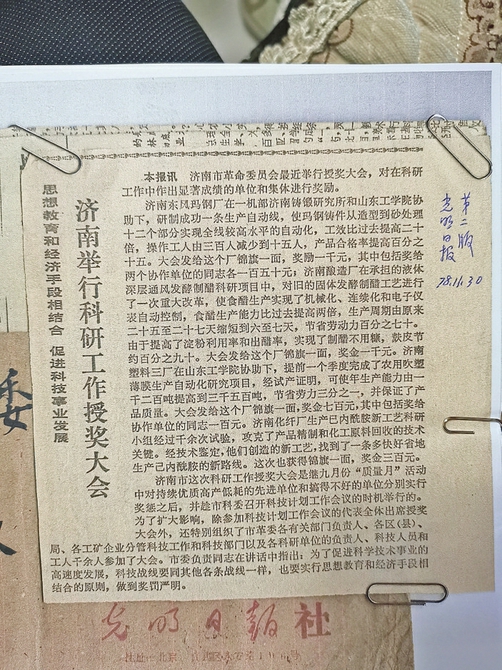 思想教育和经济手段相结合 促进科技事业发展
济南举行科研工作授奖大会
本报讯 济南市革命委员会最近举行授奖大会，对在科研
工作中作出显著成绩的单位和集体进行奖励。
济南东风玛钢厂在一机部济南铸锻研究所和山东工学院协
助下，研制成功一条生产自动线，使玛钢铸件从造型到砂处理
十二个部分实现全线较高水平的自动化，工效比过去提高二十
倍，操作工人由三百人减少到十五人，产品合格率提高百分之
十五。大会发给这个厂锦旗一面，奖励一千元，其中包括奖给
两个协作单位的同志各一百五十元，济南酿造厂在承担的液体
深层通风发酵制醋科研项目中，对旧的固体发酵制醋工艺进行
了一次重大改革，使食醋生产实现了机械化、连续化和电子仪
表自动控制，食醋生产能力比过去提高两倍，生产周期由原来
二十五至二十七天缩短到六至七天，节省劳动力百分之七十。
由于提高了淀粉利用率和出醋率，实现了制醋不用糠，麸皮节
约百分之九十。大会发给这个厂锦旗一面，奖金一千元。济南
塑料三厂在山东工学院协助下，提前一个季度完成了农用吹塑
薄膜生产自动化研究项目，经试产证明，可使年生产能力由一
千二百吨提高到三千五百吨，节省劳力三分之一，并保证了产
品质量。大会发给这个厂锦旗一面，奖金七百元，其中包括奖给
协作单位的同志一百元。济南化纤厂生产己内酰胺新工艺科研
小组经过千余次试验，攻克了产品精制和化工原料回收的技术
关键。经技术鉴定，他们创造的新工艺，找到了一条多快好省地
生产己内酰胺的新路线。这次也获得锦旗一面，奖金三百元。
济南市这次科研工作授奖大会是继九月份“质量月”活动
中对持续优质高产低耗的先进单位和搞得不好的单位分别实行
奖惩之后，并趁市科委召开科技计划工作会议的时机举行的。
为了扩大影响，除参加科技计划工作会议的代表全体出席授奖
大会外，还特别组织了市革委各有关部门负责人、各区（县）、
局、各工矿企业分管科技工作和科技部门以及各科研单位的负责人、科技人员和
工人千余人参加了大会。市委负责同志在讲话中指出：为了促进科学技术事业的
高速度发展，科技战线要同其他各条战线一样，也要实行思想教育和经济手段相
结合的原则，做到奖罚严明。
第二版
光明日报
78.11.30
委
光明日报社